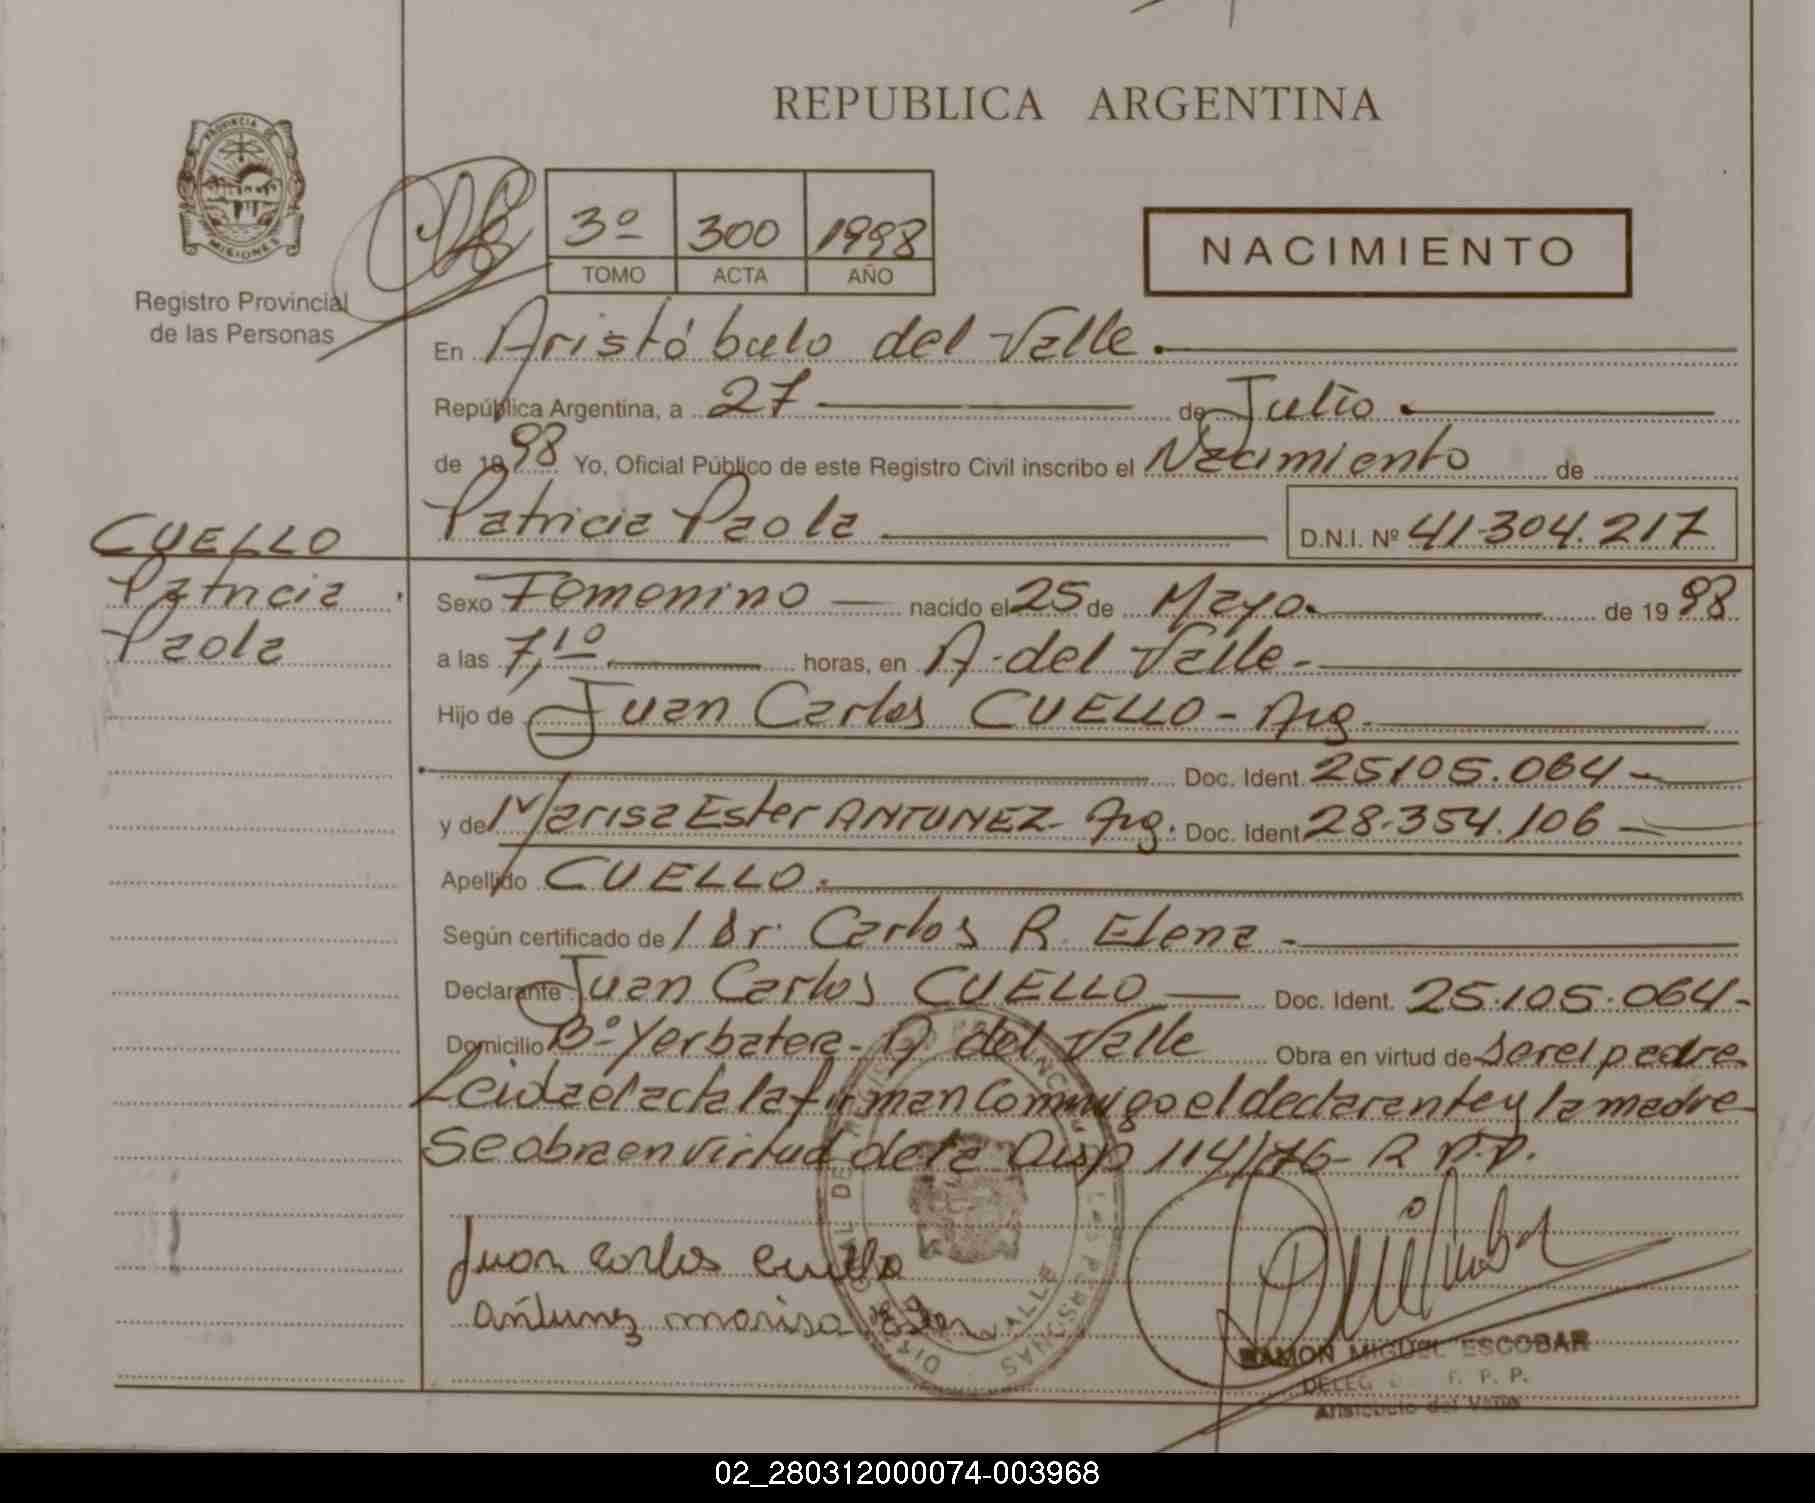 REPUBLICA ARGENTINA
PROVINCIA DE
MISIONES
Registro Provincial
de las Personas
3º 300 1998
TOMO ACTA AÑO
NACIMIENTO
En Aristóbulo del Valle.
República Argentina, a 27 de Julio.
de 1998 Yo, Oficial Público de este Registro Civil inscribo el Nacimiento de
Patricia Paola D.N.I. Nº 41304.217
CUELLO
Patricia
Paola
Sexo Femenino nacido el 25 de Mayo. de 1998
a las 7,10 horas, en A. del Valle.
Hijo de Juan Carlos CUELLO - Arg.
Doc. Ident. 25105.064
y de Marisa Ester ANTUNEZ - Arg. Doc. Ident. 28.354.106
Apellido CUELLO.
Según certificado de / Dr. Carlos R. Elena
Declarante Juan Carlos CUELLO Doc. Ident. 25.105.064-
Domicilio Bº Yerbatera - A del Valle Obra en virtud de ser el padre
Leida el acta la firman Conmigo el declarante y la madre
Se obra en virtud de la Disp 114/76- R P.P.
Juan Carlos Cuello
Antunez Marisa Ester
RAMON MIGUEL ESCOBAR
DELEG P. P.
Aristobulo del Valle
02_280312000074-003968